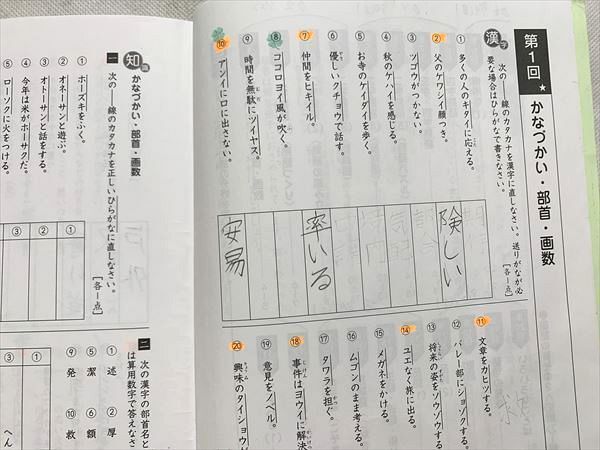 第1回★
かなづかい・部首・画数
漢字
次の――線のカタカナを漢字に直しなさい。送りがなが必
要な場合はひらがなで書きなさい。
［各1点］
① 多くの人のキタイに応える。
② 父のケワシイ顔つき。
③ ツゴウがつかない。
④ 秋のケハイを感じる。
⑤ お寺のケイダイを歩く。
⑥ 優しいクチョウで話す。
⑦ 仲間をヒキイル。
⑧ ココロヨイ風が吹く。
⑨ 時間を無駄にツイヤス。
⑩ アンイに口に出さない。
険しい
率いる
安易
⑪ 文章をカヒツする。
⑫ バレー部にショゾクする。
⑬ 将来の姿をソウゾウする
⑭ ユエなく旅に出る。
⑮ メガネをかける。
⑯ ムゴンのまま考える。
⑰ タワラを担ぐ。
⑱ 事件はヨウイに解決
⑲ 意見をノベル。
⑳ 興味のタイショウが
知識
かなづかい・部首・画数
一
次の――線のカタカナを正しいひらがなに直しなさい。
［各1点］
① ホーズキをふく。
② オネーサンと遊ぶ。
③ オトーサンと話をする。
④ 今年は米がホーサクだ。
⑤ ローソクに火をつける。
①
②
③
二
次の漢字の部首名と
は算用数字で答えなさ
① 述
② 厚
⑤ 潔
⑥ 額
⑨ 発
⑩ 救
①
③
へん